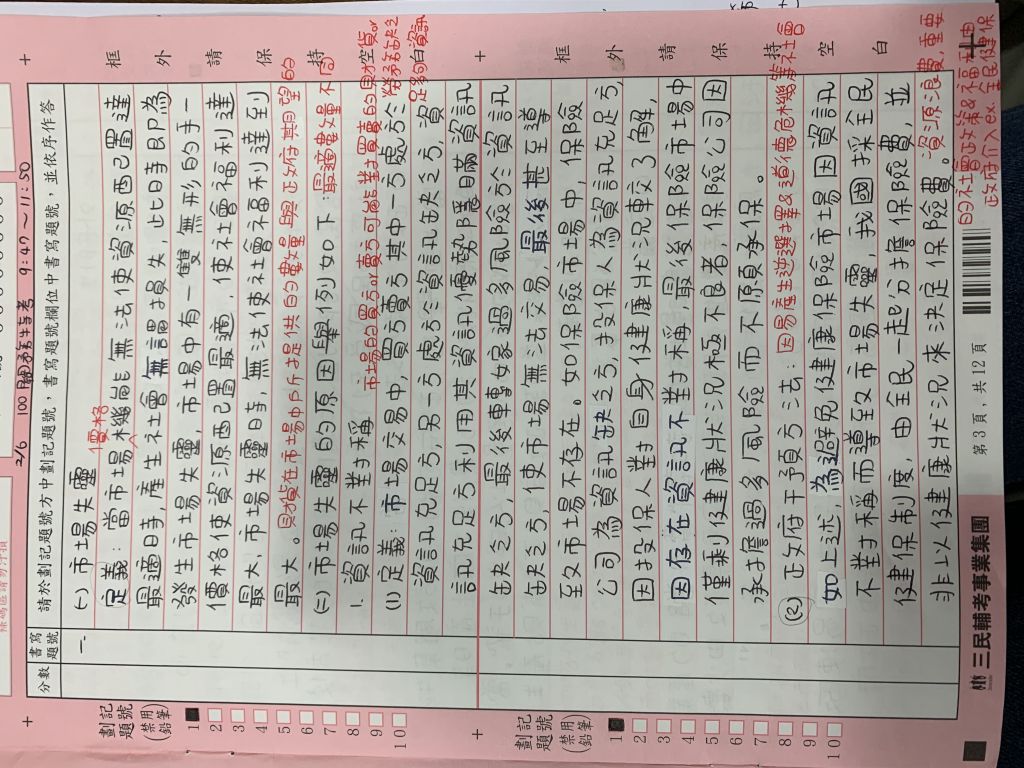 2/6 100 關務特考 9:47～11:50
請於劃記題號方中劃記題號，書寫題號欄位中書寫題號，並依序作答
分數
書寫題號
框 外 請 保 持
框 外 請 保 持 空 白
劃記題號
(禁用鉛筆)
1
2
3
4
5
6
7
8
9
10
一、
(一) 市場失靈
價格
定義：當市場機能無法使資源配置達
最適時，產生社會無謂損失，此時即為
發生市場失靈，市場中有一雙無形的手－
價格使資源配置最適，使社會福利達
最大，市場失靈時，無法使社會福利達到
最大。財貨在市場中所提供的數量與政府期望的
最適數量不同
(二) 市場失靈的原因舉例如下：
1. 資訊不對稱
市場的買方or賣方可能對買賣的財貨or
勞務缺乏足夠的資訊
(1) 定義：市場交易中，買方賣方其中一方處於
資訊充足方，另一方處於資訊缺乏方，資
訊充足方利用其資訊優勢隱瞞資訊
缺乏方，最後轉嫁過多風險於資訊
缺乏方，使市場無法交易，最後甚至導
致市場不存在。如保險市場中，保險
公司為資訊缺乏方，投保人為資訊充足方，
因投保人對自身健康狀況較了解，
因存在資訊不對稱，最後保險市場中
僅剩健康狀況極不良者，保險公司因
承擔過多風險而不願承保。
(2) 政府干預方法：因易產生逆選擇&道德危機等社會
資源浪費，重要
的社會政策&福利由
政府介入ex.全民健保
如上述，為避免健康保險市場因資訊
不對稱而導致市場失靈，我國採全民
健保制度，由全民一起分擔保險費，並
非以健康狀況來決定保險費。
劃記題號
(禁用鉛筆)
1
2
3
4
5
6
7
8
9
10
三民輔考事業集團
第 3 頁，共 12 頁